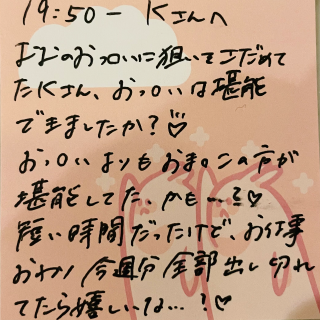 19:50ー Kさんへ
ななのおっ○いに狙いをさだめて
たKさん、おっ○いは堪能
できましたか?
おっ○いよりもおま○この方が
堪能してた、かも…?♡
短い時間だったけど、お仕事
おわり 今週分全部出し切れ
てたら嬉しいな…?♡